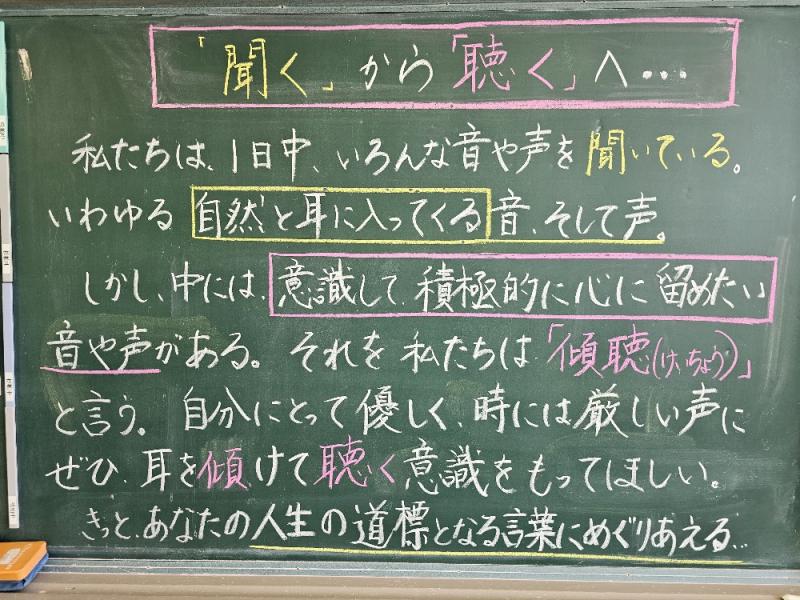 「聞く」から「聴く」へ…
私たちは、1日中、いろんな音や声を聞いている。
いわゆる自然と耳に入ってくる音、そして声。
しかし、中には、意識して積極的に心に留めたい
音や声がある。それを私たちは「傾聴(けいちょう)」
と言う。自分にとって優しく、時には厳しい声に
ぜひ、耳を傾けて聴く意識をもってほしい。
きっと、あなたの人生の道標となる言葉にめぐりあえる…